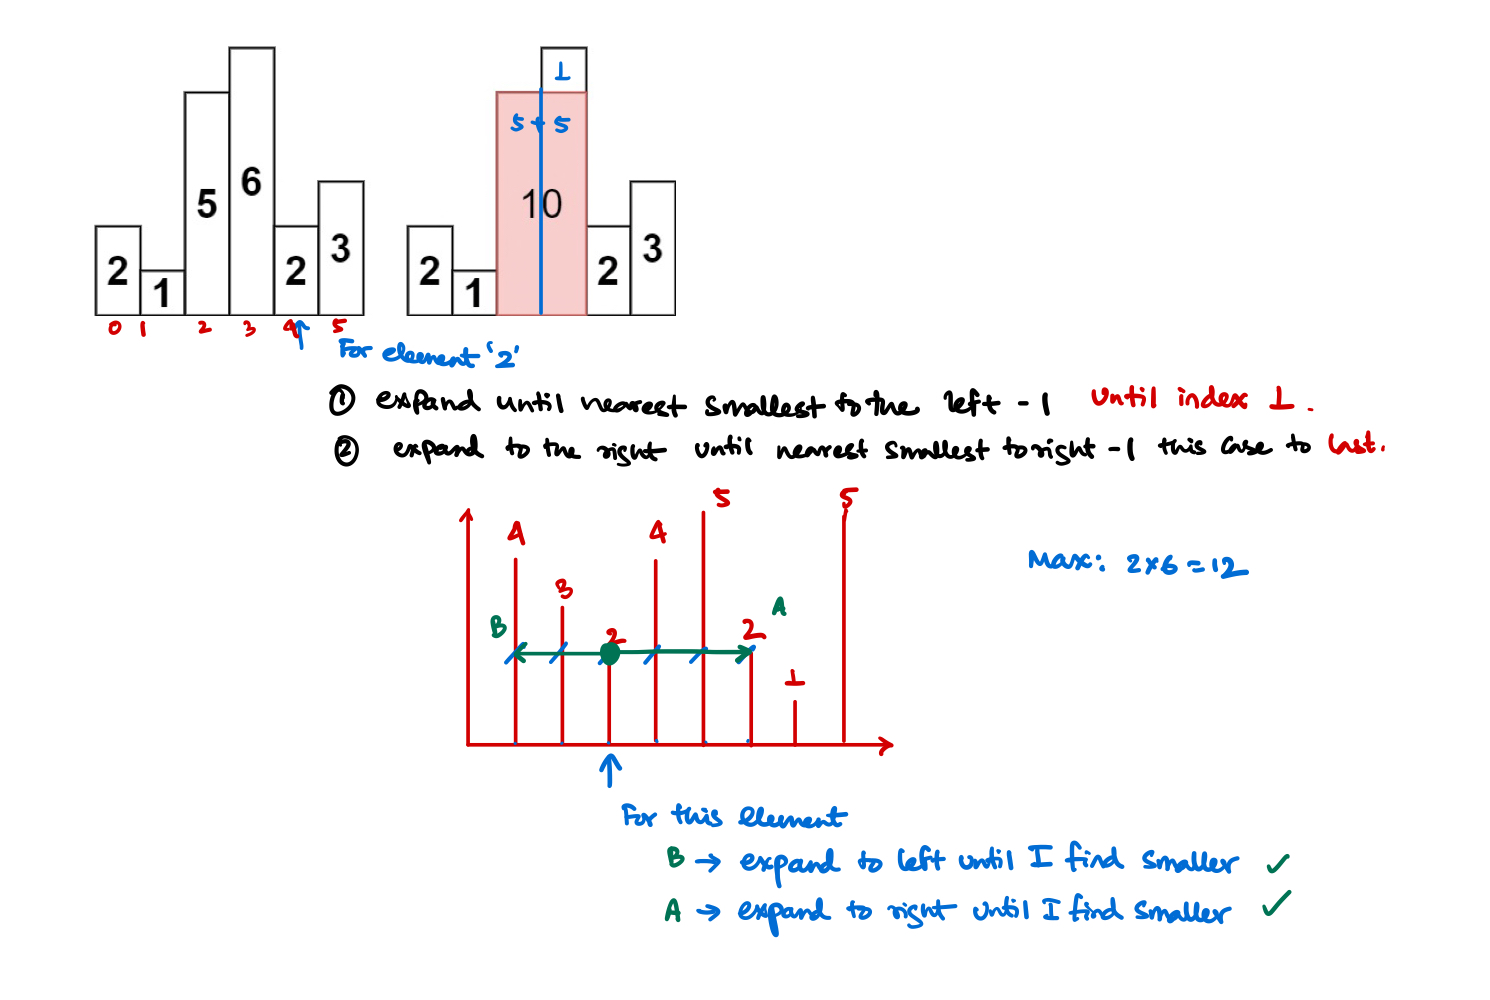 1
5 + 5
2 1 5 6 2 3
2 1 10 2 3
0 1 2 3 4 5
For element '2'
① expand until nearest smallest to the left - 1 until index 1.
② expand to the right until nearest smallest to right - 1 this case to last.
4 3 2 4 5 2 1 5
B A
Max: 2x6 = 12
For this element
B → expand to left until I find smaller ✓
A → expand to right until I find smaller ✓